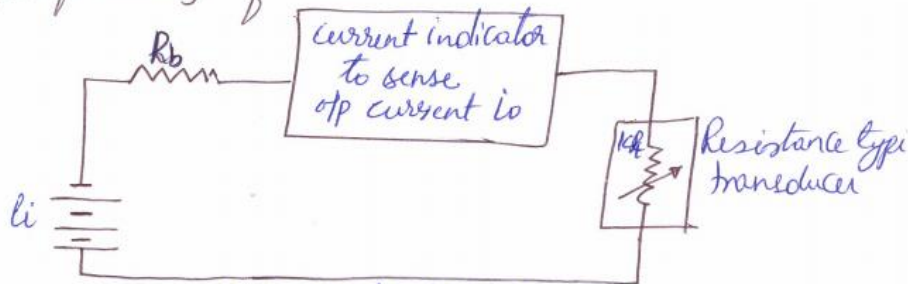 Rb
current indicator
to sense
o/p current io
KR
Resistance type
transducer
ei